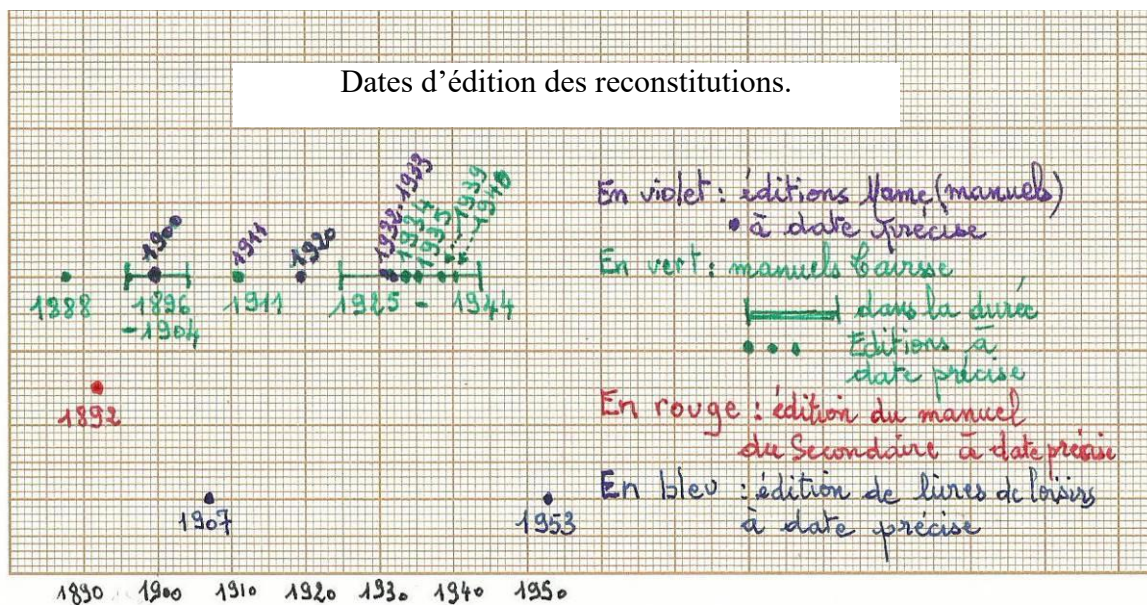 Dates d'édition des reconstitutions.
1900
1911
1920
1932-1933
1934
1935
1939
1940
1888
1896
-1904
1911
1925 - 1944
1892
1907
1953
1890 1900 1910 1920 1930 1940 1950
En violet : éditions Mame (manuels)
• à date précise
En vert : manuels
dans la durée
Editions à
date précise
En rouge : édition du manuel
du Secondaire à date précise
En bleu : édition de livres de loisirs
à date précise